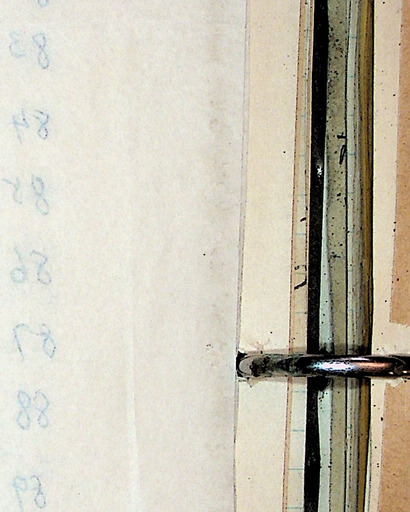 83
84
85
86
87
88
89